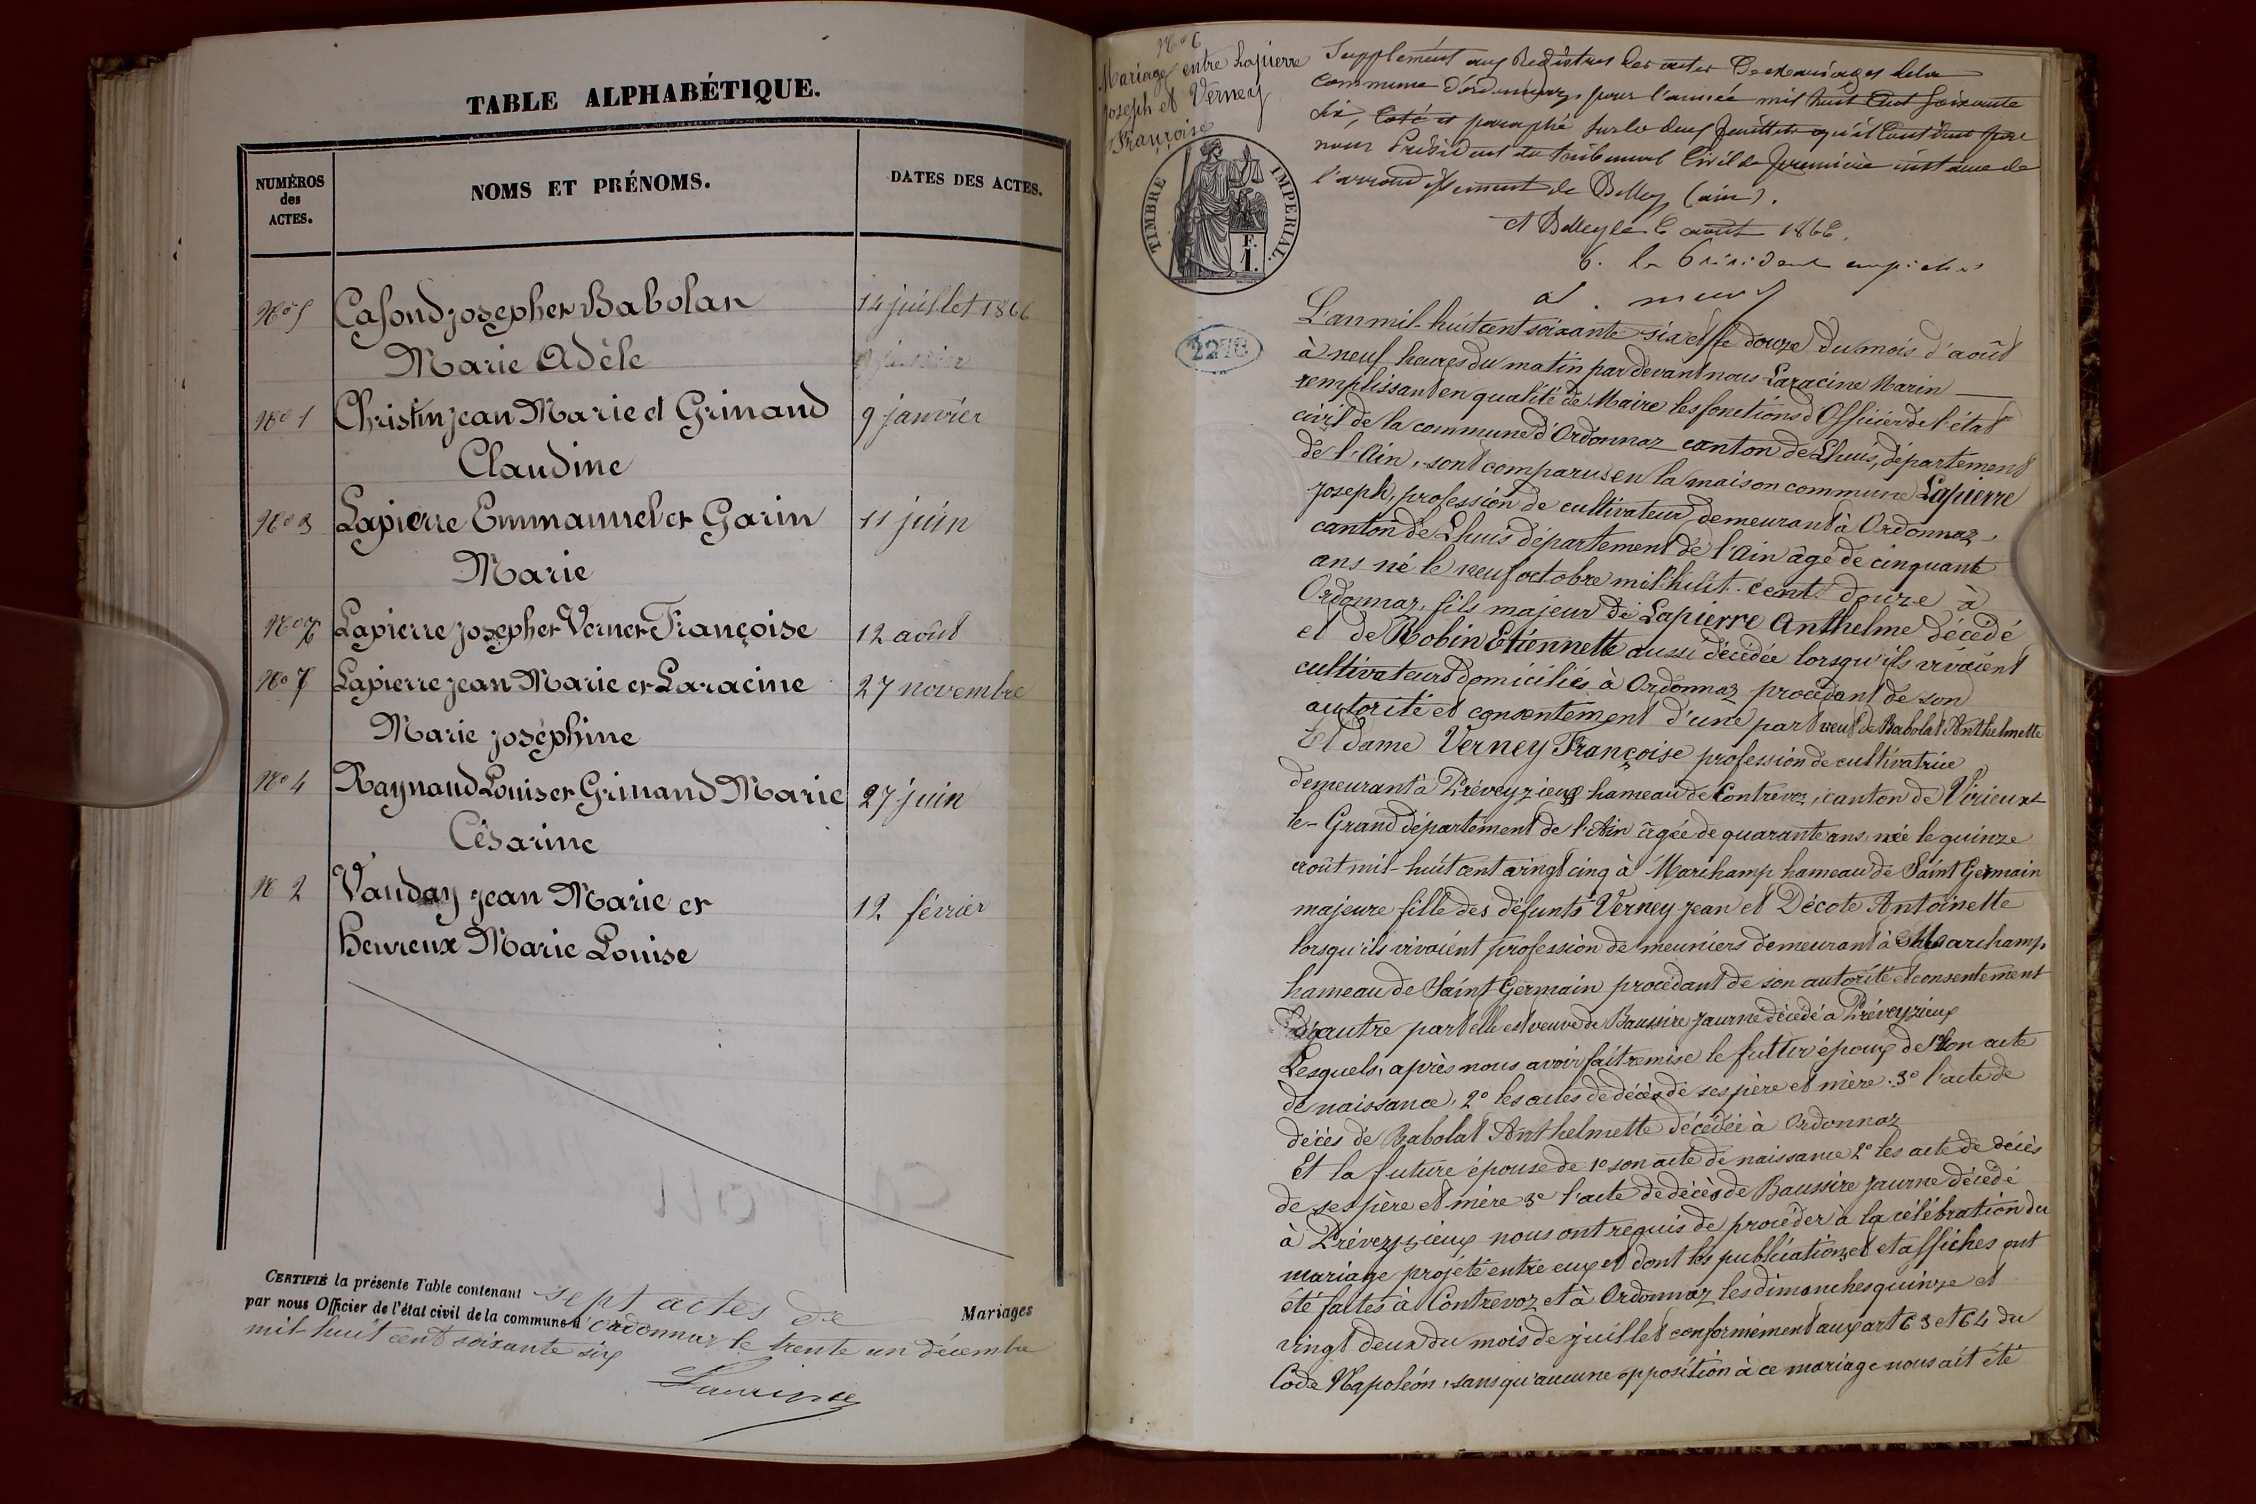 TABLE ALPHABÉTIQUE.
NUMÉROS
des
ACTES.
NOMS ET PRÉNOMS.
DATES DES ACTES.
No 5 Casond Joseph et Babolan 14 juillet 1866
Marie Adèle 9 janvier
No 1 Christin Jean Marie et Grinand 9 janvier
Claudine
No 3 Lapierre Emmannuel et Garin 11 juin
Marie
No 6 Lapierre Joseph et Vernet Françoise 12 août
No 7 Lapierre Jean Marie et Laracine 27 novembre
Marie Joséphine
No 4 Raynaud Louis et Grinand Marie 27 juin
Césarine
No 2 Vauday Jean Marie et 12 février
heureux Marie Louise
CERTIFIÉ la présente Table contenant sept actes de Mariages
par nous Officier de l'état civil de la commune d'Ordonnaz le trente un décembre
mil huit cent soixante six
No 6
Mariage entre Lapierre
Joseph et Verney
Françoise
TIMBRE IMPERIAL.
F.
1.
2278
Supplément aux Registres des actes de mariages de la
commune d'ordonnaz, pour l'année mil huit cent soixante
six, coté et paraphé sur les deux feuillets qu'il contient par
nous Président du tribunal Civil de première instance de
l'arrondissement de Belley (ain).
A Belley le 6 août 1866.
P. le Président empêché
L'an mil-huit cent soixante-six et le douze du mois d'août
à neuf heures du matin par devant nous Laracine Marin
remplissant en qualité de Maire les fonctions d'Officier de l'état
civil de la commune d'Ordonnaz canton de Lhuis, département
de l'Ain, sont comparus en la maison commune Lapierre
Joseph, profession de cultivateur, demeurant à Ordonnaz,
canton de Lhuis département de l'Ain âgé de cinquante
ans né le neuf octobre mil-huit-cent-douze à
Ordonnaz, fils majeur de Lapierre Anthelme décédé
et de Robin Etiennette aussi décédée lorsqu'ils vivaient
cultivateurs domiciliés à Ordonnaz procédant de son
autorité et consentement d'une part veuf de Babolat Anthelmette
Et dame Verney Françoise profession de cultivatrice
demeurant à Préveyzieux hameau de Contrevoz, canton de Virieux-
le-Grand département de l'Ain âgée de quarante ans, née le quinze
août mil-huit cent vingt cinq à Marchamp hameau de Saint Germain
majeure fille des défunts Verney Jean et Décote Antoinette
lorsqu'ils vivaient profession de meuniers demeurant à Marchamp,
hameau de Saint Germain procédant de son autorité et consentement
d'autre part elle est veuve de Baussire Jaurne décédé à Préveyzieux
Lesquels, après nous avoir fait remise le futur époux de 1o son acte
de naissance, 2o les actes de décès de ses père et mère, 3o l'acte de
décès de Babolat Anthelmette décédée à Ordonnaz
Et la future épouse de 1o son acte de naissance 2o les acte de décès
de ses père et mère 3e l'acte de décès de Baussire Jaurne décédé
à Préveyzieux nous ont requis de procéder à la célébration du
mariage projeté entre eux et dont les publications et affiches ont
été faites à Contrevoz et à Ordonnaz les dimanches quinze et
vingt deux du mois de juillet conformément aux art 63 et 64 du
Code Napoléon, sans qu'aucune opposition à ce mariage nous ait été